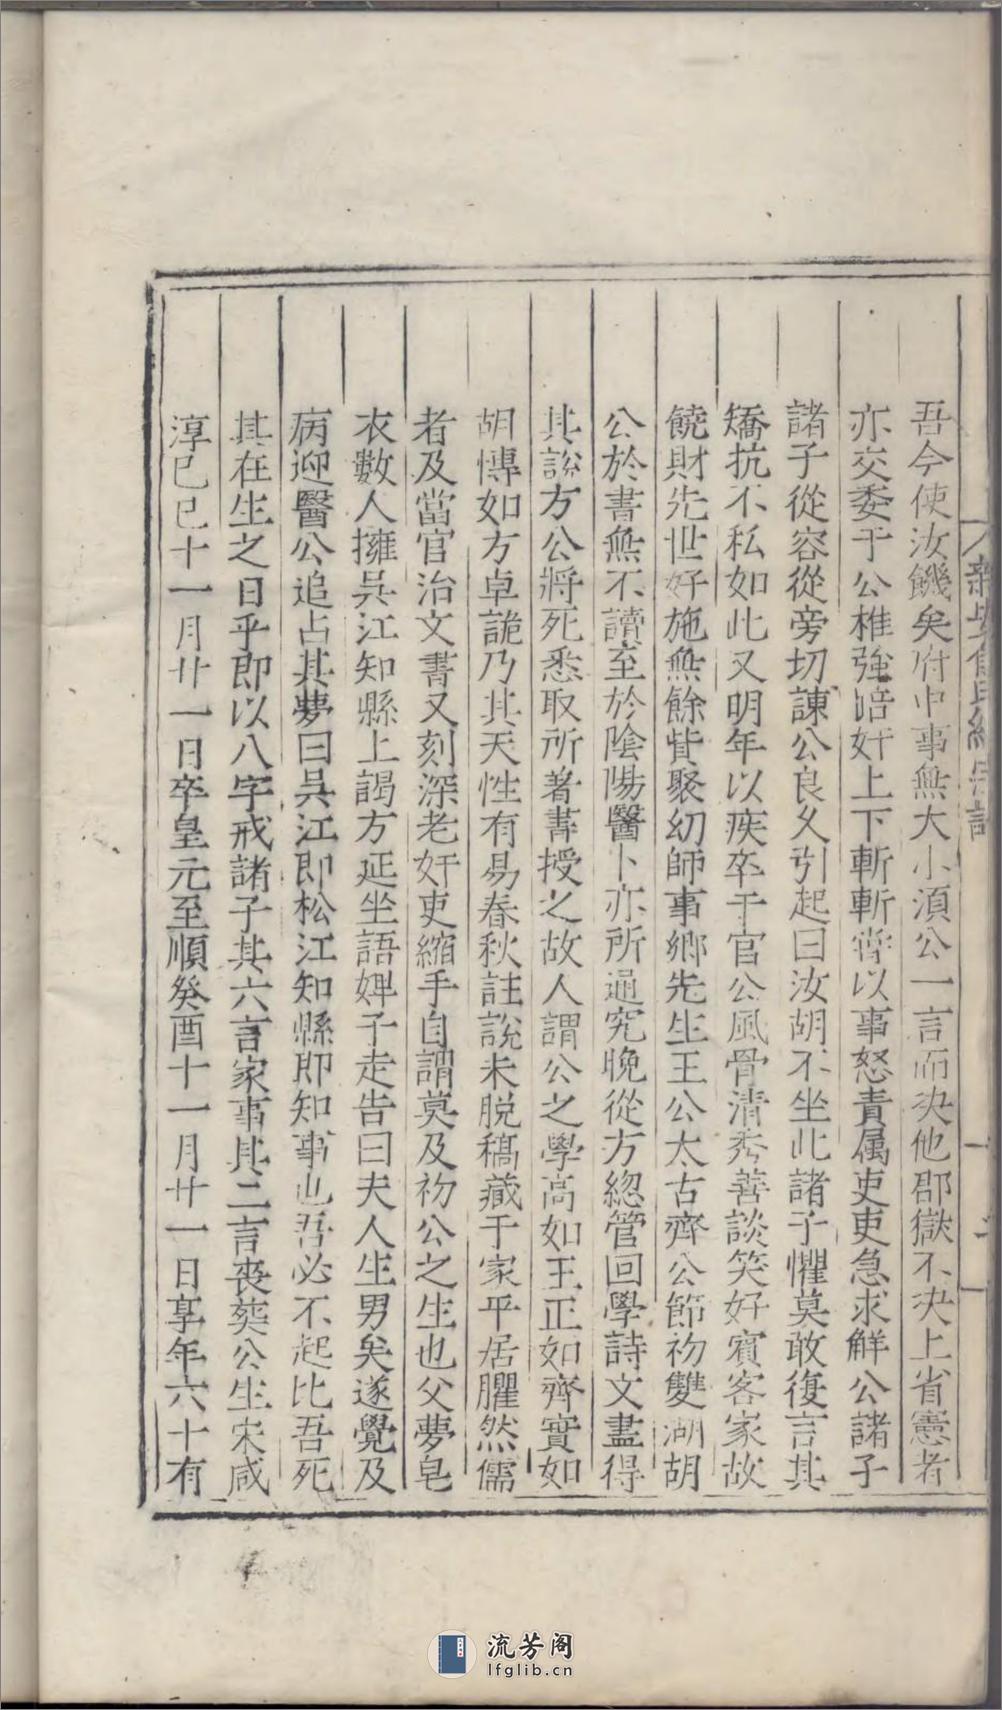 吾今使汝饑矣府中事無大小須公一言而決他郡獄不決上省憲者
亦交委于公椎強培奸上下斬斬嘗以事怒責属吏吏急求觧公諸子
諸子從容從旁切諫公良久引起曰汝胡不坐此諸子懼莫敢復言其
矯抗不私如此又明年以疾卒于官公風骨清秀善談笑好賓客家故
饒財先世好施無餘貲聚幼師事鄉先生王公太古齊公節初雙湖胡
公於書無不讀至於陰陽醫卜亦所通究晚從方總管回學詩文盡得
其說方公將死悉取所著書授之故人謂公之學高如王正如齊實如
胡慱如方卓詭乃其天性有易春秋註說未脱稿藏于家平居臞然儒
者及當官治文書又刻深老奸吏縮手自謂莫及初公之生也父夢皂
衣數人擁吳江知縣上謁方延坐語婢子走告曰夫人生男矣遂覺及
病迎醫公追占其夢曰吳江即松江知縣即知事也吾必不起比吾死
其在生之日乎即以八字戒諸子其六言家事其二言丧葬公生宋咸
淳己巳十一月廿一日卒皇元至順癸酉十一月廿一日享年六十有
流芳阁
lfglib.cn